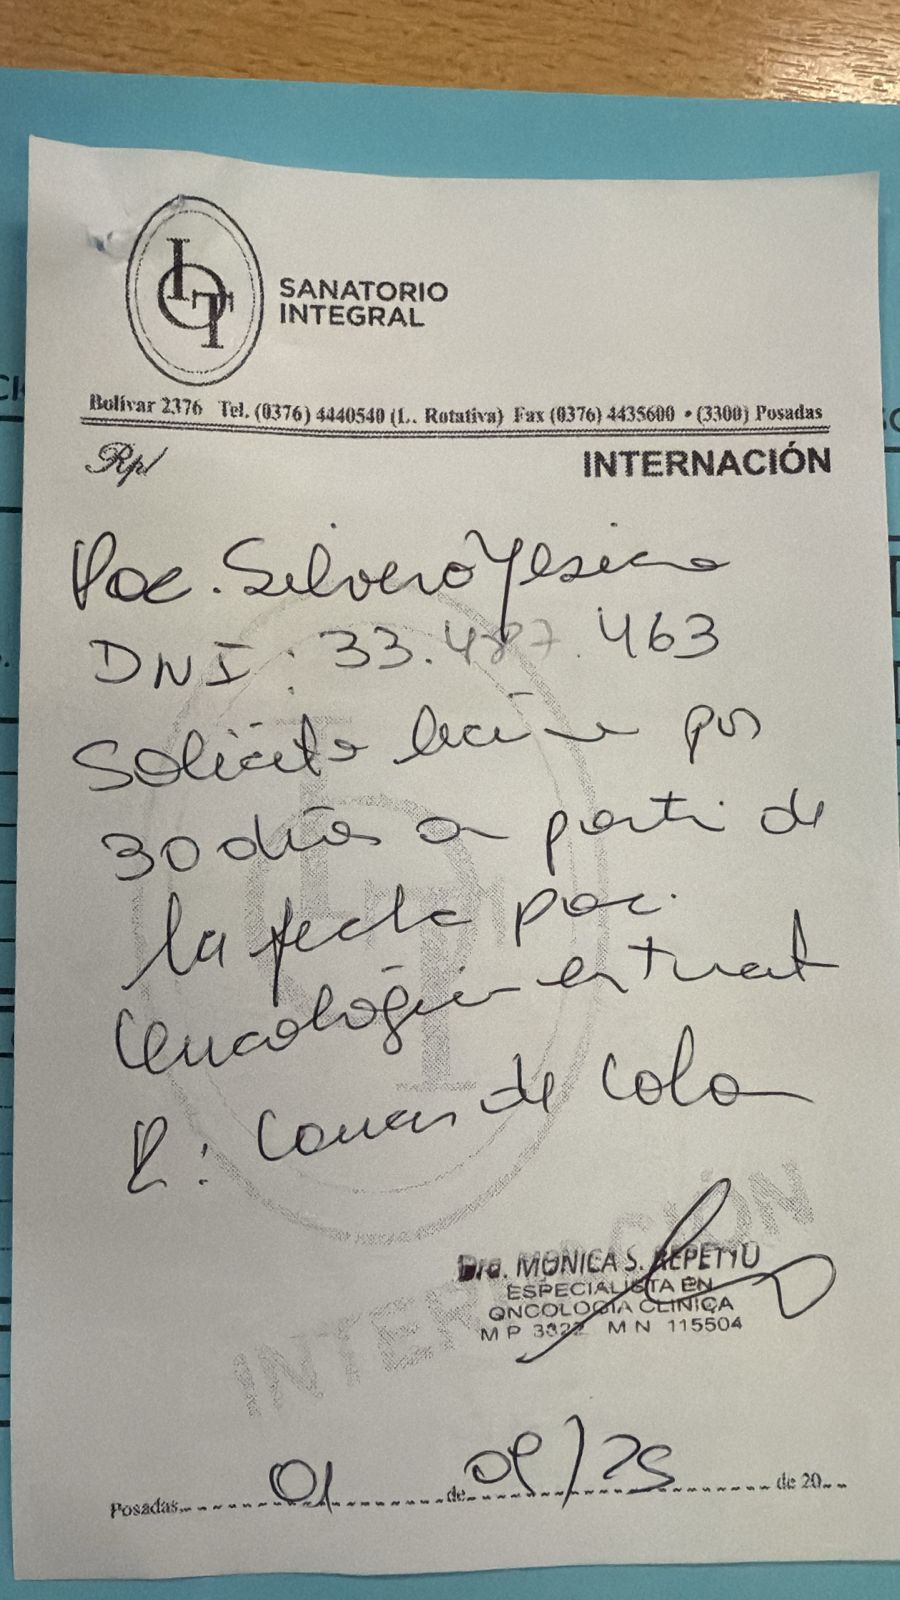 IOT
SANATORIO
INTEGRAL
Bolívar 2376 Tel. (0376) 4440540 (L. Rotativa) Fax (0376) 4435600 • (3300) Posadas
Rp/
INTERNACIÓN
Pac. Silvero Yesica
DNI: 33.487.463
Solicito licencia por
30 días a partir de
la fecha pac.
oncológica en trat
D: Cancer de Colon
INTERNACIÓN
Dra. MONICA S. REPETTO
ESPECIALISTA EN
ONCOLOGIA CLINICA
M P 3822 M N 115504
Posadas, 01 de 09/25 de 20